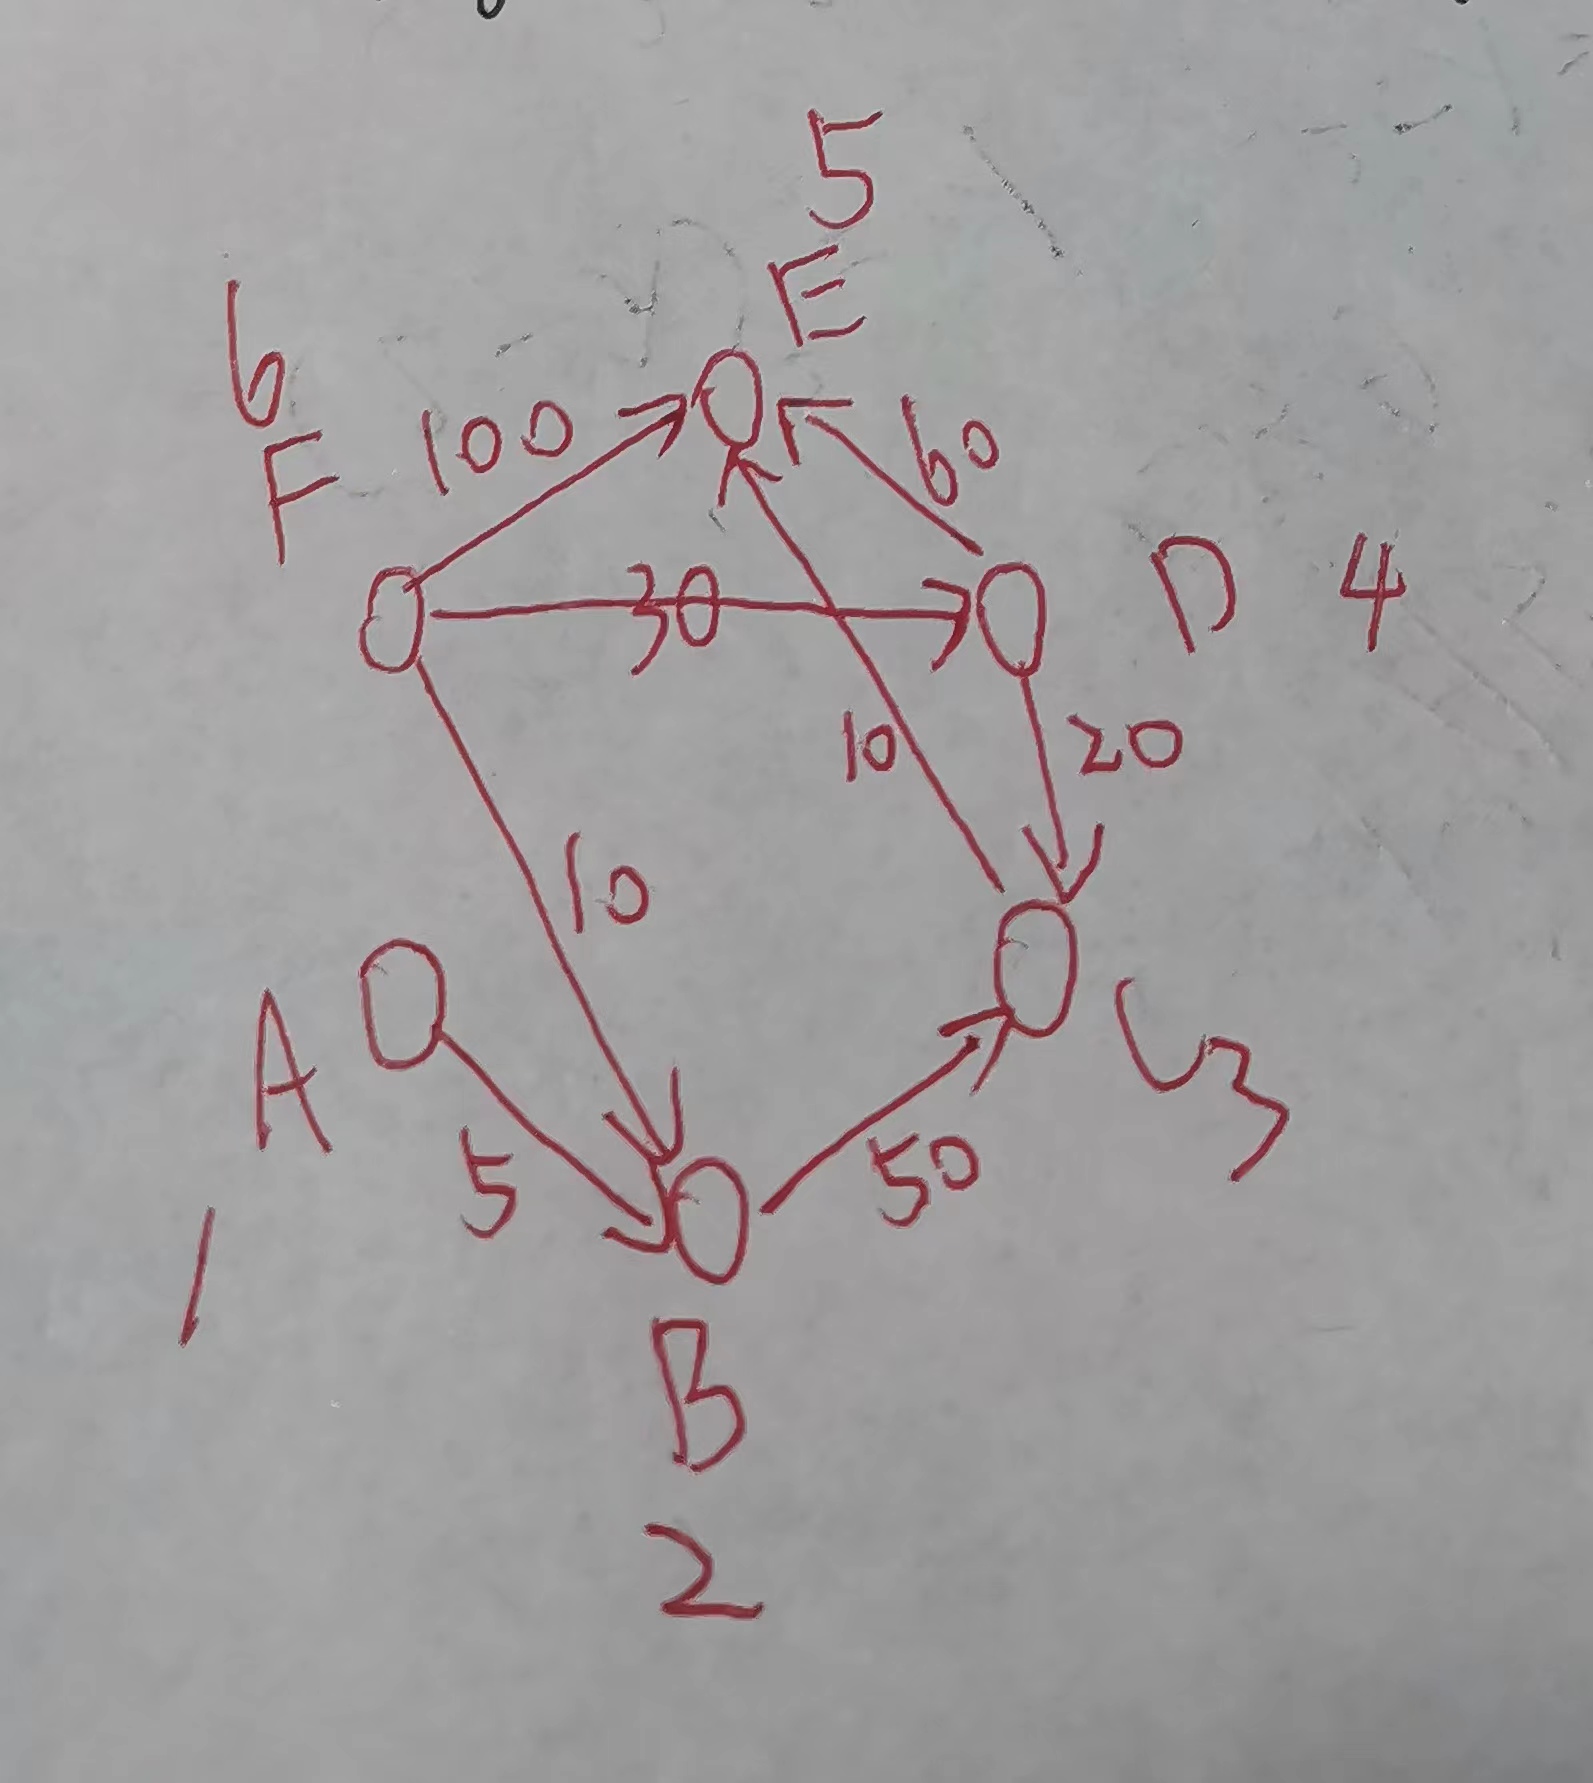 5
E
6
F
100
60
30
D 4
10
20
10
A
5
C 3
50
1
B
2